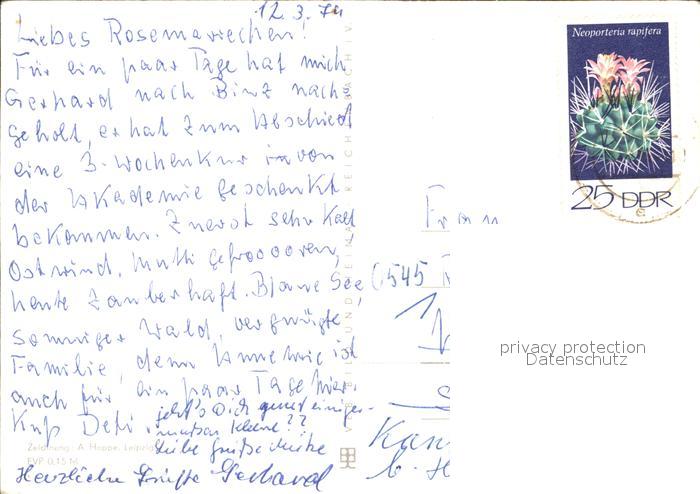 12.3.74
Liebes Rosemariechen!
Für ein paar Tage hat mich
Gerhard nach Binz nach-
geholt, er hat zum Abschied
eine 3-Wochenkur von
der Akademie geschenkt
bekommen. Zuerst sehr kalt
Ostwind, Mutti gefroooren,
heute zauberhaft. Blaue See,
sonniger Wald, vergnügte
Familie, denn Annemie ist
auch für ein paar Tage hier.
Kuß Deti.
geht's Dich
Kleine??
Liebe Grüße
Herzliche Grüße Gerhard
Zeichnung: A. Hoppe, Leipzig
EVP 0,15 M
Neoporteria rapifera
25 DDR
Frau
6545
privacy protection
Datenschutz